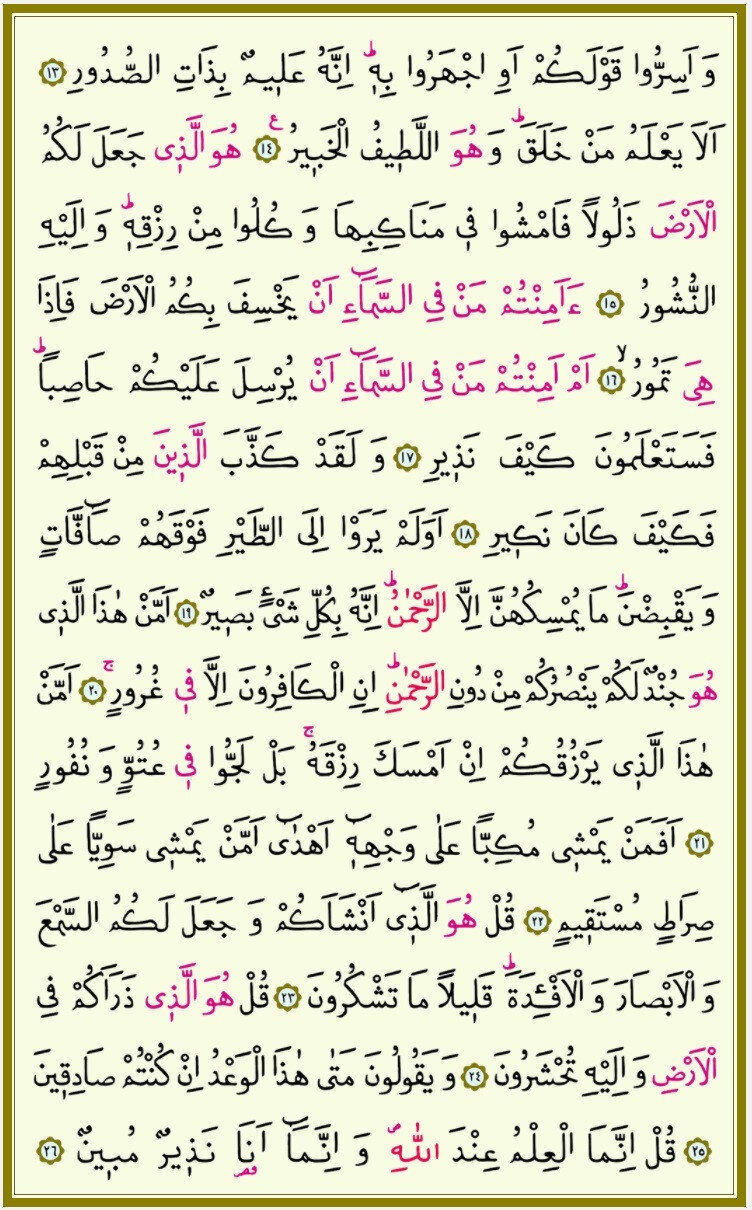 وَ اَسِرُّوا قَوْلَكُمْ اَوِ اجْهَرُوا بِهٖۜ اِنَّهُ عَلٖيمٌ بِذَاتِ الصُّدُورِ ﴿١٣﴾
اَلَا يَعْلَمُ مَنْ خَلَقَۜ وَ هُوَ اللَّطٖيفُ الْخَبٖيرُ ﴿١٤﴾ هُوَ الَّذٖى جَعَلَ لَكُمُ
الْاَرْضَ ذَلُولًا فَامْشُوا فٖى مَنَاكِبِهَا وَ كُلُوا مِنْ رِزْقِهٖۜ وَ اِلَيْهِ
النُّشُورُ ﴿١٥﴾ ءَاَمِنْتُمْ مَنْ فِى السَّمَٓاءِ اَنْ يَخْسِفَ بِكُمُ الْاَرْضَ فَاِذَا
هِىَ تَمُورُۙ ﴿١٦﴾ اَمْ اَمِنْتُمْ مَنْ فِى السَّمَٓاءِ اَنْ يُرْسِلَ عَلَيْكُمْ حَاصِبًاۜ
فَسَتَعْلَمُونَ كَيْفَ نَذٖيرِ ﴿١٧﴾ وَ لَقَدْ كَذَّبَ الَّذٖينَ مِنْ قَبْلِهِمْ
فَكَيْفَ كَانَ نَكٖيرِ ﴿١٨﴾ اَوَلَمْ يَرَوْا اِلَى الطَّيْرِ فَوْقَهُمْ صَٓافَّاتٍ
وَ يَقْبِضْنَۜ مَا يُمْسِكُهُنَّ اِلَّا الرَّحْمٰنُۜ اِنَّهُ بِكُلِّ شَیْءٍ بَصٖيرٌ ﴿١٩﴾ اَمَّنْ هٰذَا الَّذٖى
هُوَ جُنْدٌ لَكُمْ يَنْصُرُكُمْ مِنْ دُونِ الرَّحْمٰنِۜ اِنِ الْكَافِرُونَ اِلَّا فٖى غُرُورٍۚ ﴿٢٠﴾ اَمَّنْ
هٰذَا الَّذٖى يَرْزُقُكُمْ اِنْ اَمْسَكَ رِزْقَهُۚ بَلْ لَجُّوا فٖى عُتُوٍّ وَ نُفُورٍ
﴿٢١﴾ اَفَمَنْ يَمْشٖى مُكِبًّا عَلٰى وَجْهِهٖٓ اَهْدٰٓى اَمَّنْ يَمْشٖى سَوِيًّا عَلٰى
صِرَاطٍ مُسْتَقٖيمٍ ﴿٢٢﴾ قُلْ هُوَ الَّذٖٓى اَنْشَاَكُمْ وَ جَعَلَ لَكُمُ السَّمْعَ
وَ الْاَبْصَارَ وَ الْاَفْـِٔدَةَۜ قَلٖيلًا مَا تَشْكُرُونَ ﴿٢٣﴾ قُلْ هُوَ الَّذٖى ذَرَاَكُمْ فِى
الْاَرْضِ وَ اِلَيْهِ تُحْشَرُونَ ﴿٢٤﴾ وَ يَقُولُونَ مَتٰى هٰذَا الْوَعْدُ اِنْ كُنْتُمْ صَادِقٖينَ
﴿٢٥﴾ قُلْ اِنَّمَا الْعِلْمُ عِنْدَ اللّٰهِ وَ اِنَّمَٓا اَنَا نَذٖيرٌ مُبٖينٌ ﴿٢٦﴾